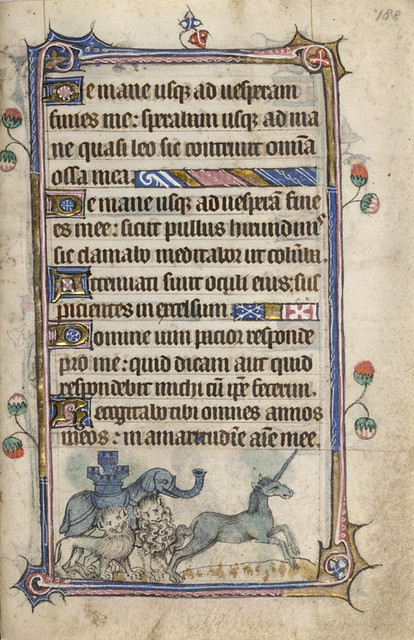 188
De mane usqꝫ ad uesperam
finies me: sperabam usqꝫ ad ma
ne quasi leo sic contriuit om̄ia
ossa mea
De mane usqꝫ ad uesperā fini
es me: sicut pullus hirundinis
sic clamabo meditabor ut colūba.
Attenuati sunt oculi eius: sus
picientes in excelsum
Domine uim pacior responde
pro me: quid dicam aut quid
respondebit michi cū ip̄e fecerim.
Recogitabo tibi omnes annos
meos: in amaritudīe aīe mee.